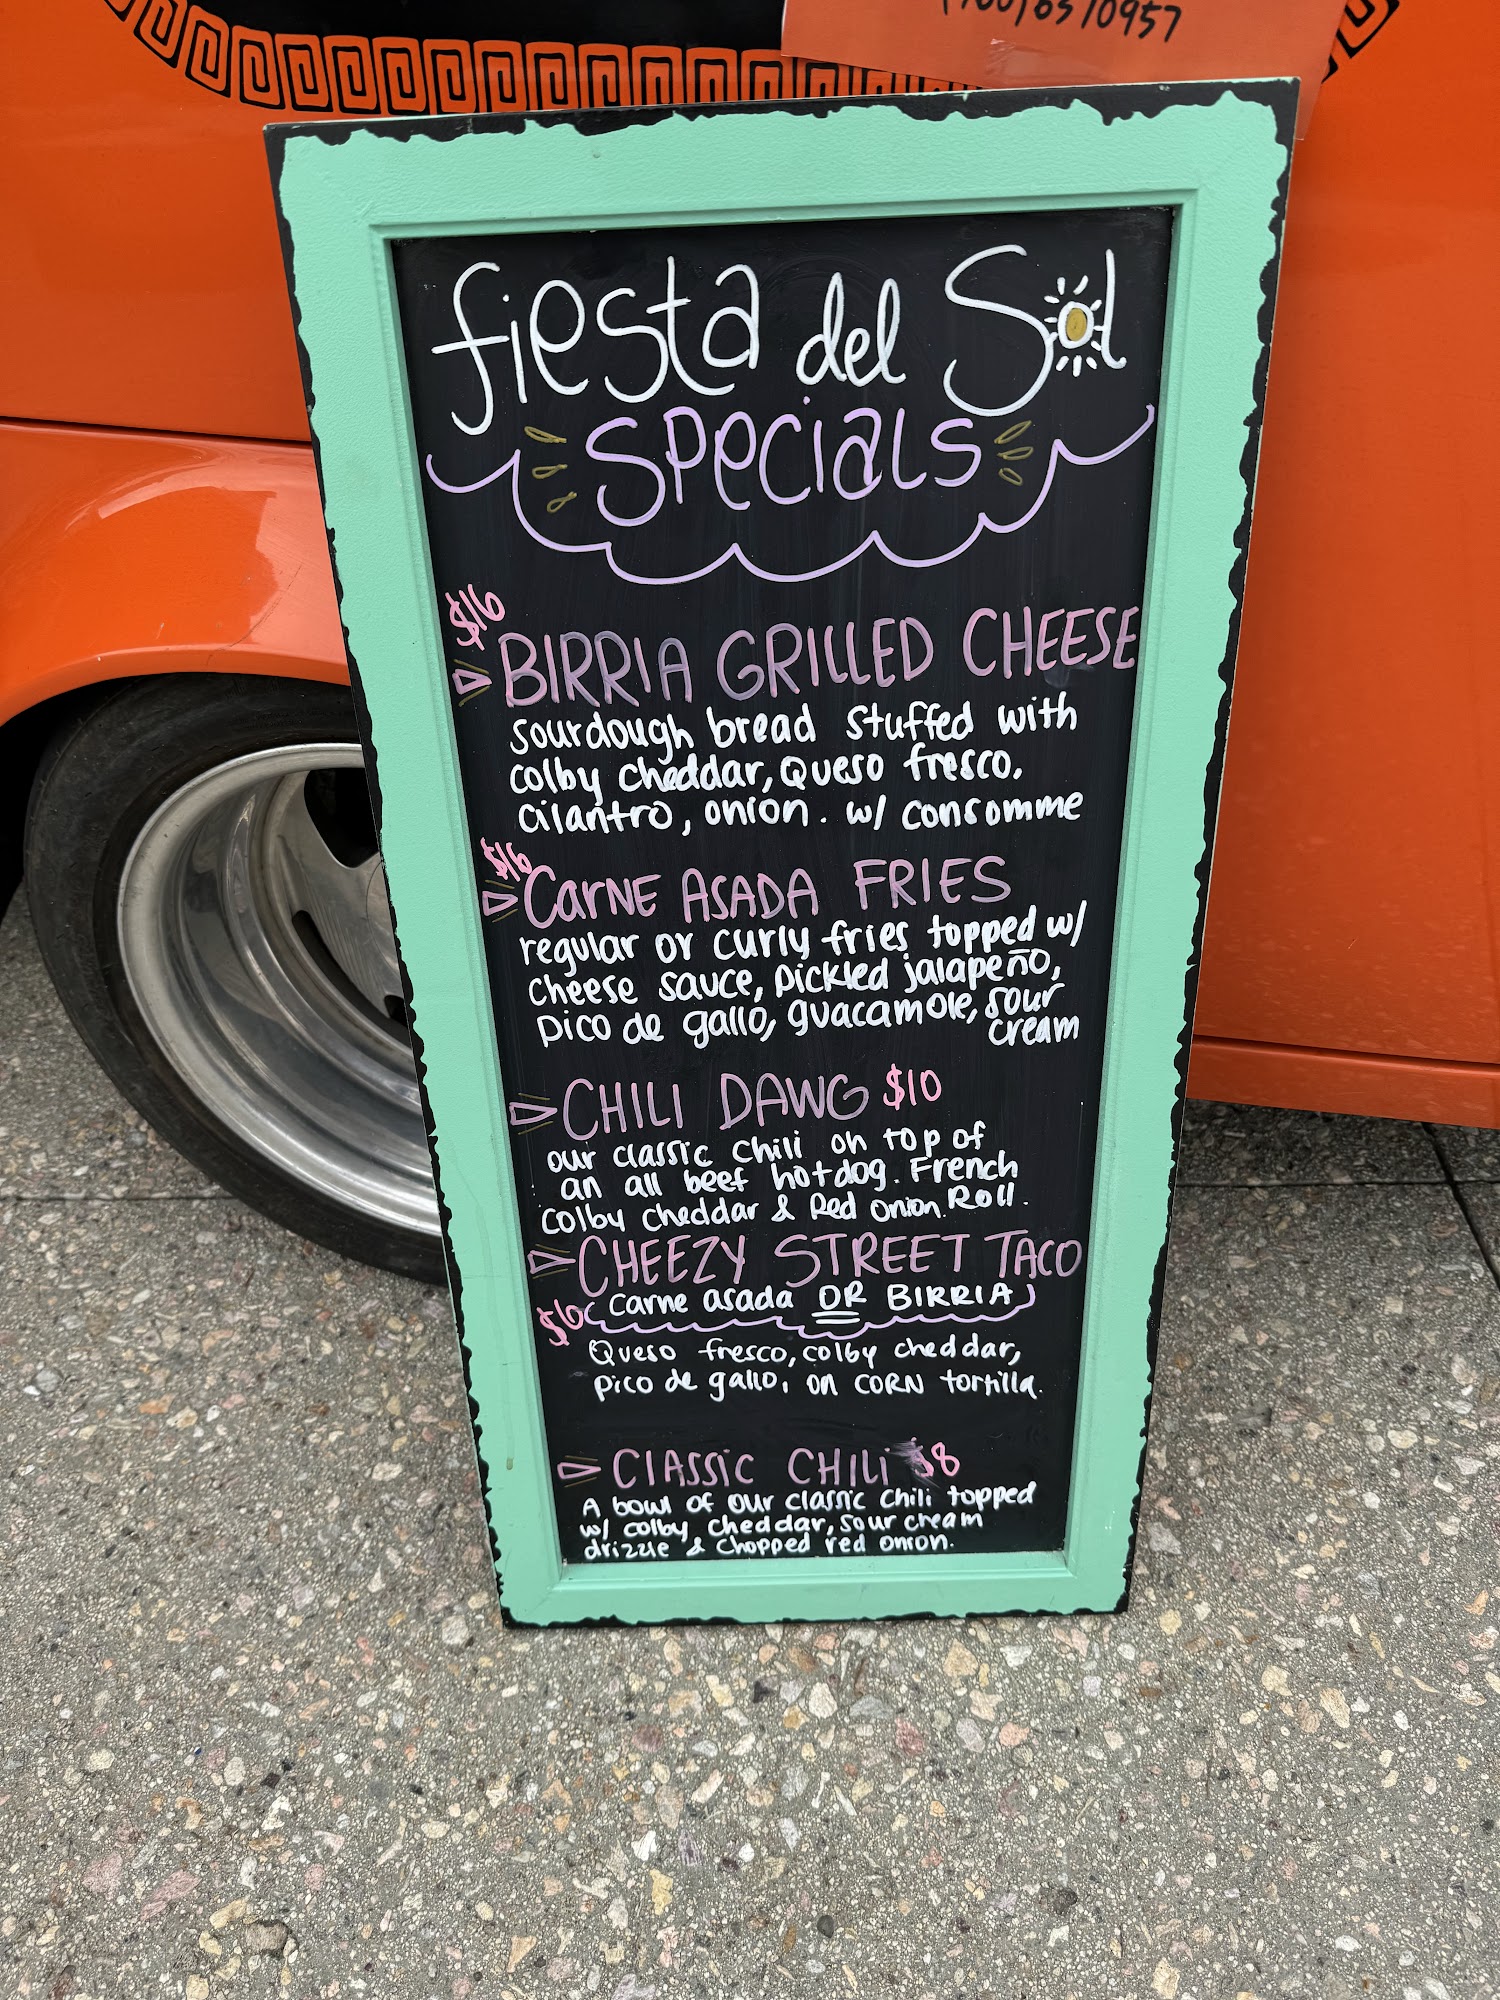 fiesta del Sol
Specials
$16
BIRRIA GRILLED CHEESE
sourdough bread stuffed with
colby cheddar, Queso fresco,
cilantro, onion. w/ consomme
$16
CARNE ASADA FRIES
regular or curly fries topped w/
cheese sauce, pickled jalapeño,
pico de gallo, guacamole, sour
cream
CHILI DAWG $10
our classic chili on top of
an all beef hotdog. French
Roll.
colby cheddar & Red onion.
CHEEZY STREET TACO
$6 (carne asada OR BIRRIA)
Queso fresco, colby cheddar,
pico de gallo, on CORN tortilla.
CLASSIC CHILI $8
A bowl of our classic chili topped
w/ colby, cheddar, sour cream
drizzle & chopped red onion.